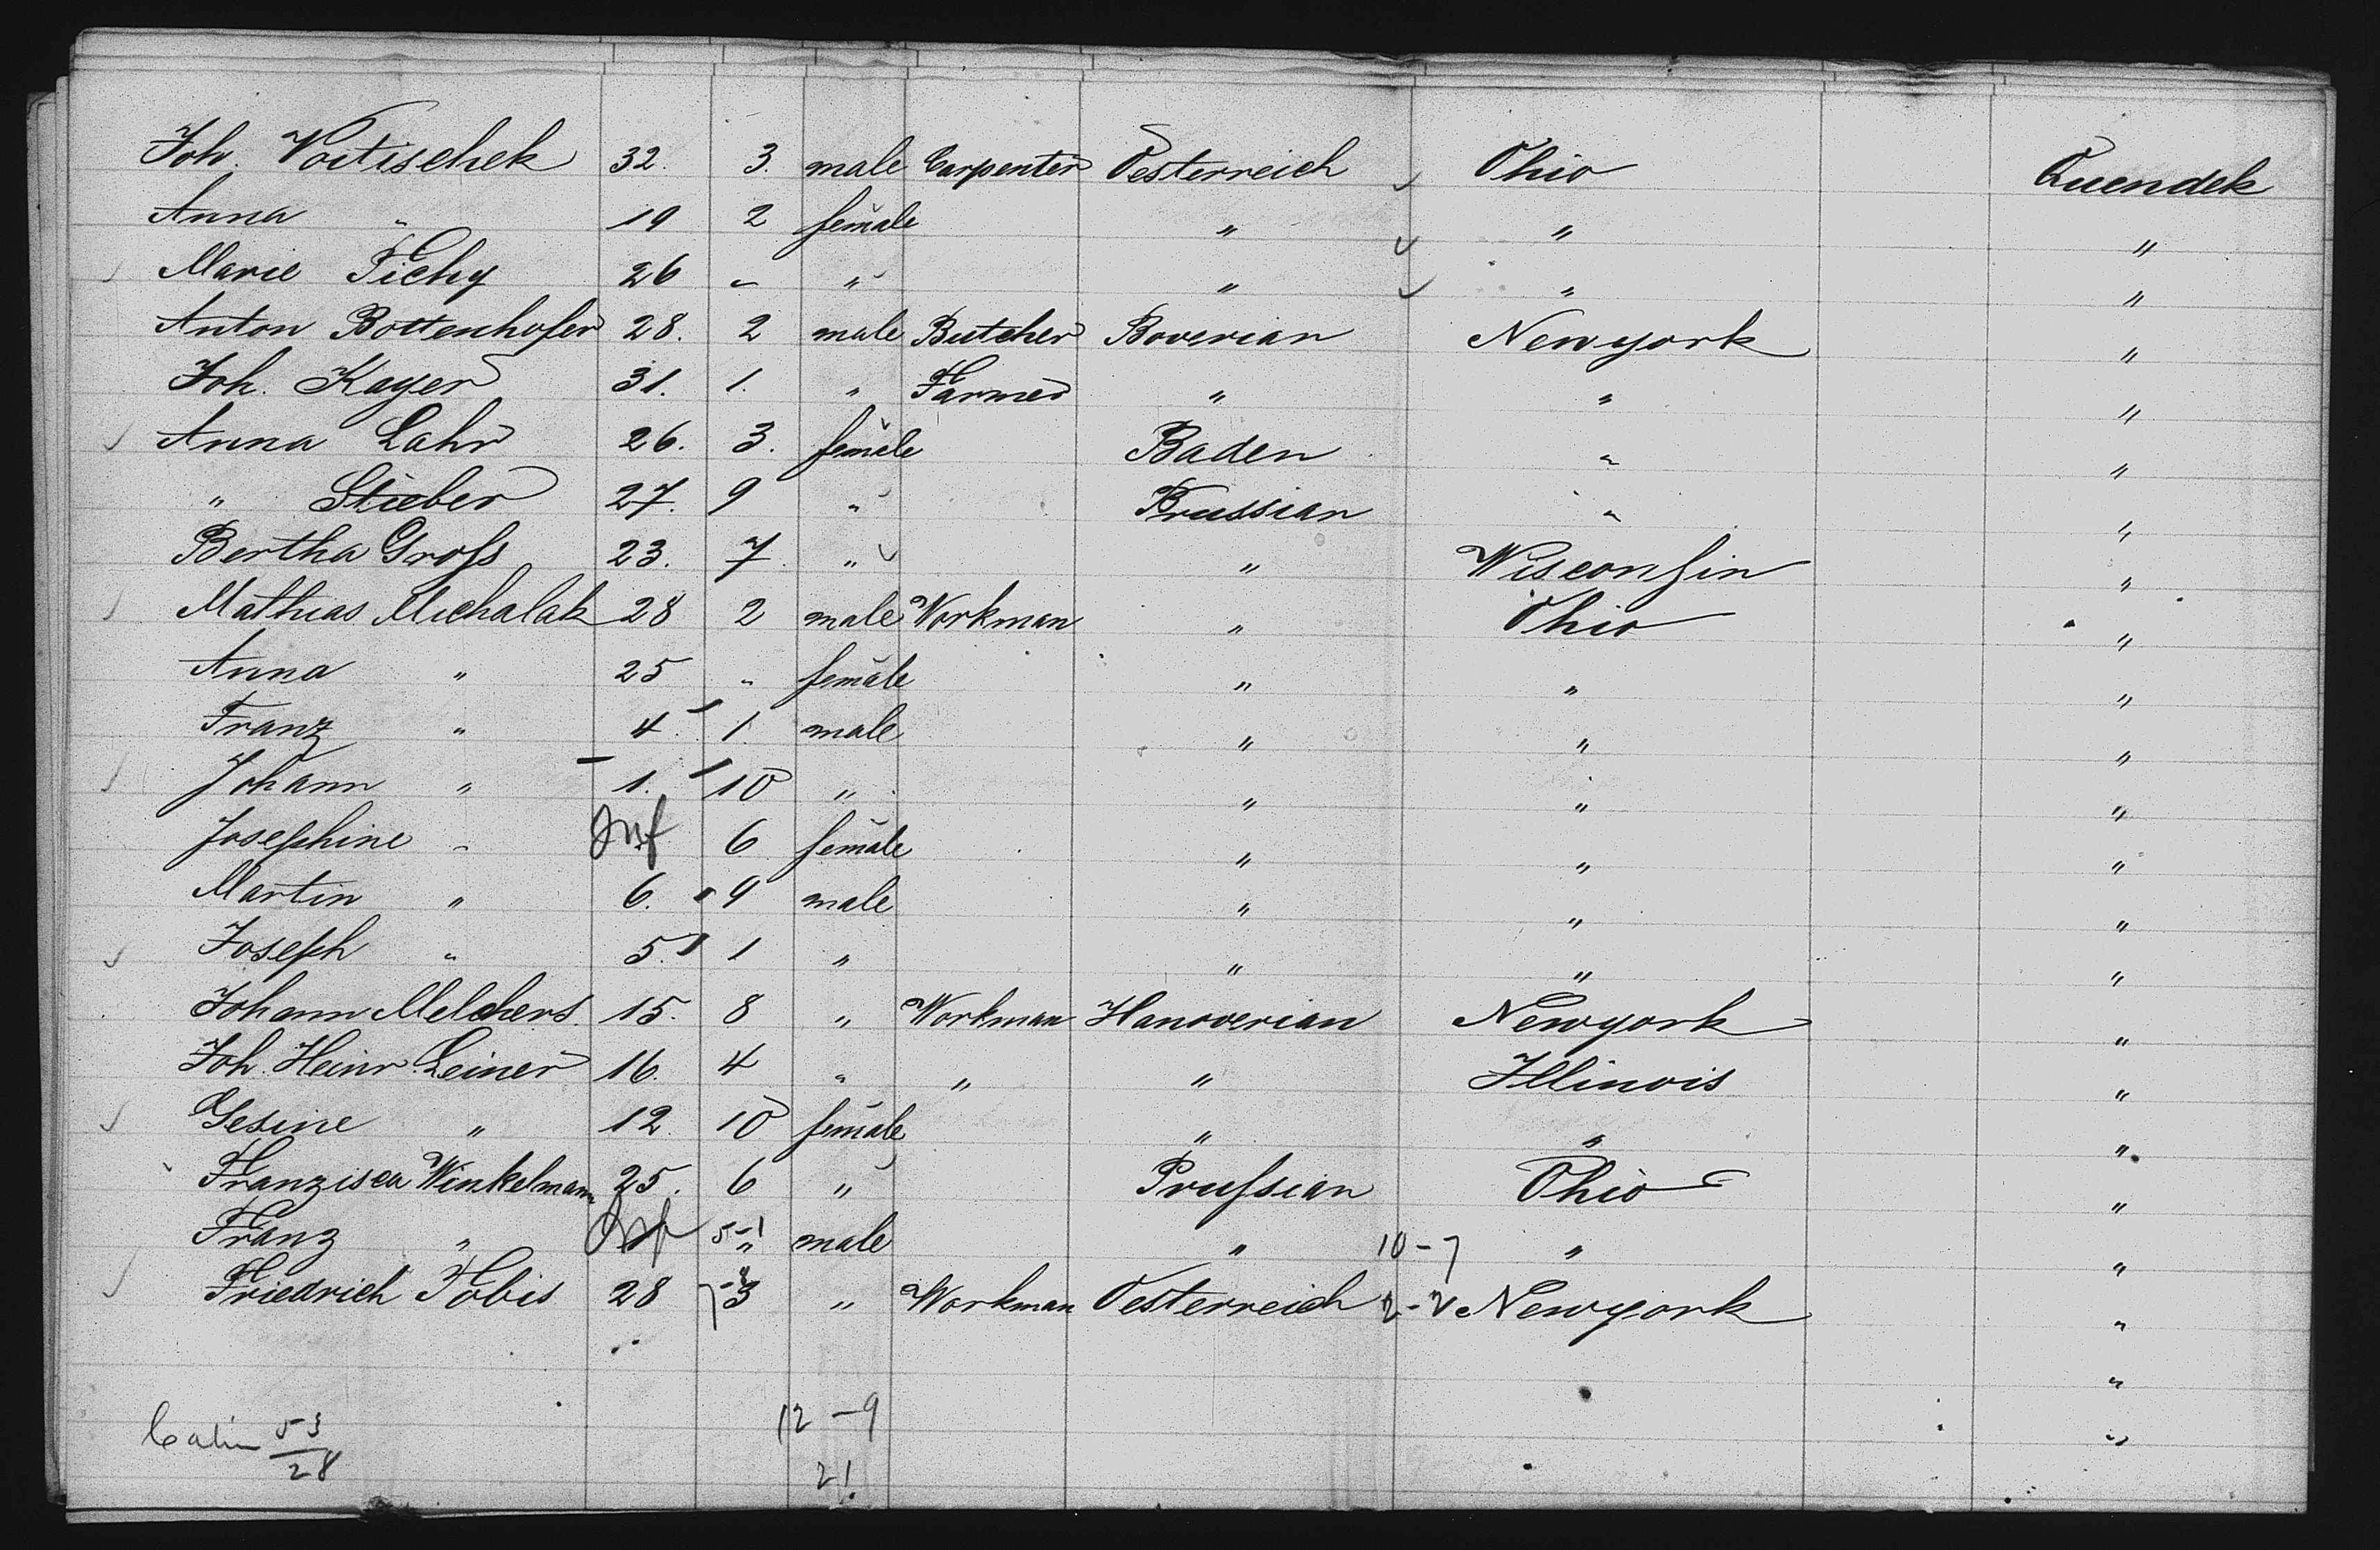 Joh. Voitischek 32. 3. male Carpenter Oesterreich Ohio Quendek
Anna " 19 2 female " " "
Marie Tichy 26 " " " " "
Anton Bottenhofer 28. 2 male Butcher Boverian Newyork "
Joh. Kayer 31. 1. " Farmer " " "
Anna Lahr 26. 3. female Baden " "
" Stieber 27. 9 " Prussian " "
Bertha Groß 23. 7. " " Wisconsin "
Mathias Michalak 28 2 male Workman " Ohio "
Anna " 25 " female " " "
Franz " 4. 1. male " " "
Johann " 1. 10 " " " "
Josephine " Inf 6 female " " "
Martin " 6. 9 male " " "
Joseph " 5. 1 " " " "
Johann Melchers 15. 8 " Workman Hanoverian Newyork "
Joh. Heinr. Leiner 16. 4 " " " Illinois "
Gesine " 12. 10 female " " "
Franzisca Winkelmann 25. 6 " Prußian Ohio "
Franz " Inf 5-1 " male " 10-7 " "
Friedrich Tobis 28 7-8 3 " Workman Oesterreich 2-2 Newyork "
"
12-9 "
Cabin 53
28 21.